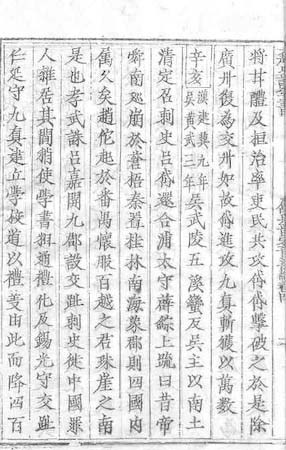 將甘醴及桓治率吏民共攻岱岱擊破之於是除
廣州復為交州如故岱進攻九真斬獲以萬數
辛亥漢建興九年吳黃武三年吳武陵五溪蠻反吳主以南土
清定召刺史呂岱還合浦太守薛綜上疏曰昔帝
舜南巡崩於蒼梧秦置桂林南海象郡則四國內
屬久矣趙佗起於番禺懷服百越之君珠崖之南
是也孝武誅呂嘉開九郡設交趾刺史徙中國罪
人雜居其間稍使學書粗通禮化及錫光守交趾
仁延守九真建立學校道以禮義由此而降四百